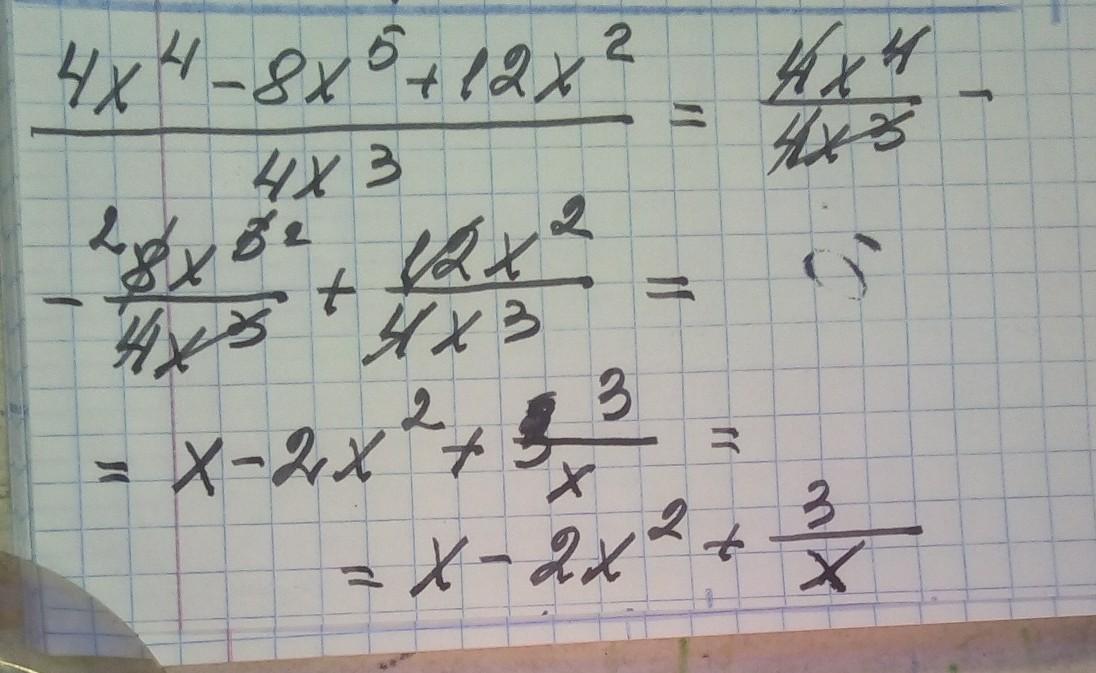 (4x^4 - 8x^5 + 12x^2)/(4x^3) = (4x^4)/(4x^3) -
- (8x^5)/(4x^3) + (12x^2)/(4x^3) =
= x - 2x^2 + 3/x =
= x - 2x^2 + 3/x